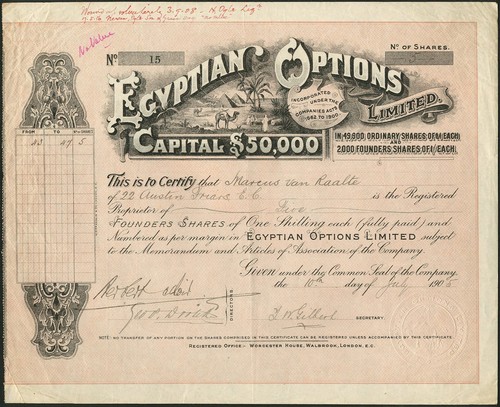 Wound up voluntarily 3.9.08.
No Value
No. 15
No. OF SHARES.
5
EGYPTIAN OPTIONS
LIMITED.
INCORPORATED
UNDER THE
COMPANIES ACTS
1862 TO 1900.
CAPITAL £50,000
IN 49,900 ORDINARY SHARES OF £1 EACH,
AND
2000 FOUNDERS SHARES OF 1/- EACH.
FROM TO
43 47 5
This is to Certify that Marcus van Raalte
of 22 Austin Friars E.C. is the Registered
Proprietor of Five
FOUNDERS SHARES of One Shilling each (fully paid) and
Numbered as per margin in EGYPTIAN OPTIONS LIMITED subject
to the Memorandum and Articles of Association of the Company.
Given under the Common Seal of the Company,
the 10th day of July 190
DIRECTORS
SECRETARY.
NOTE: NO TRANSFER OF ANY PORTION OF THE SHARES COMPRISED IN THIS CERTIFICATE CAN BE REGISTERED UNLESS ACCOMPANIED BY THIS CERTIFICATE.
REGISTERED OFFICE:- WORCESTER HOUSE, WALBROOK, LONDON, E.C.